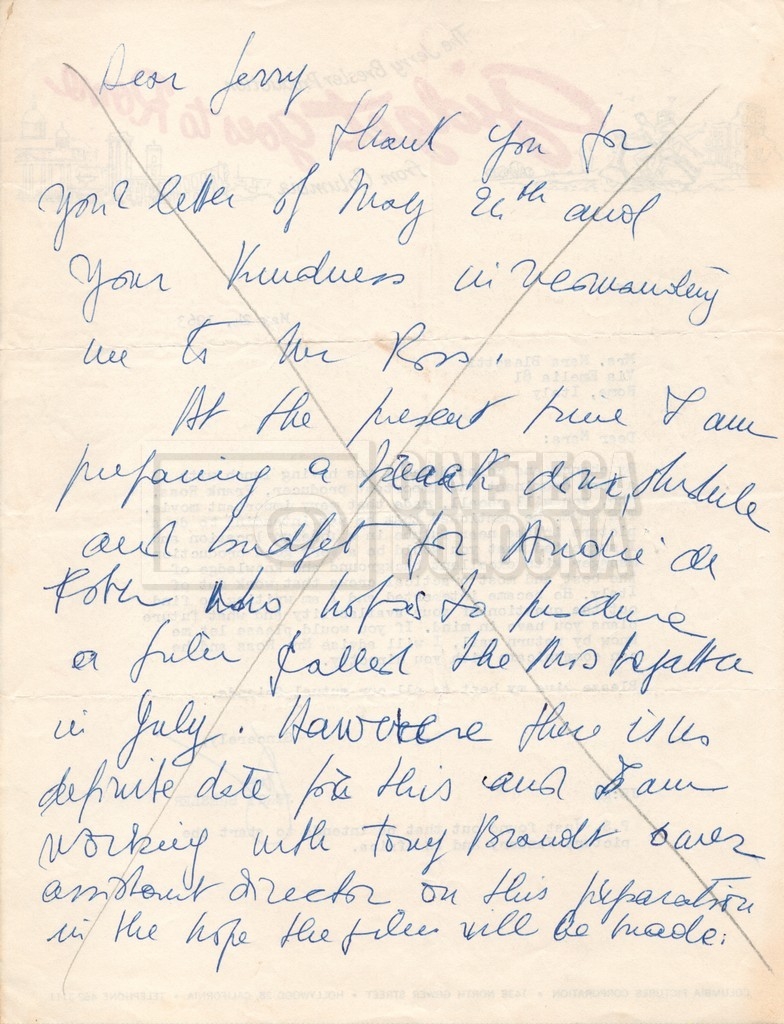 Dear Jerry
thank you for
your letter of May 24th and
your kindness in recomanding
me to Mr Ross.
At the present time I am
preparing a break down, shedule
and budget for André de
who hopes to produce
a film called the
in July. However there is no
definite date for this and I am
working with Tony Brandt
assistant director on this preparation
in the hope the film will be made.
CINETECA
BOLOGNA